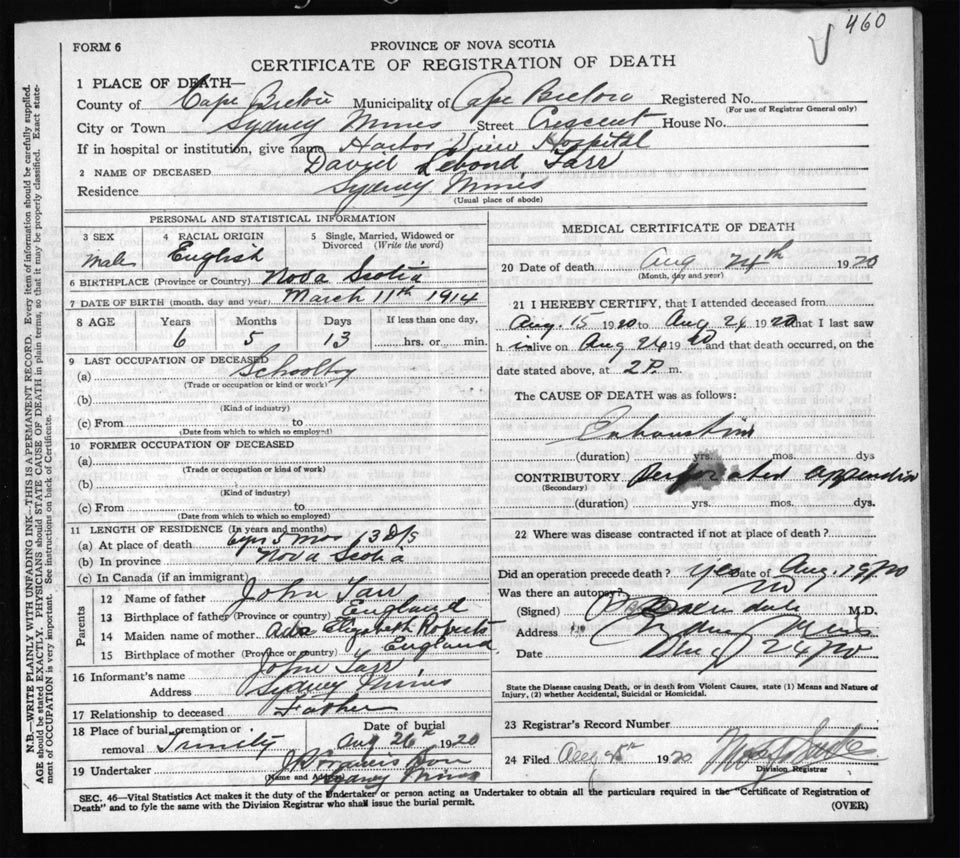 460
FORM 6
PROVINCE OF NOVA SCOTIA
CERTIFICATE OF REGISTRATION OF DEATH
1 PLACE OF DEATH—
County of Cape Breton Municipality of Cape Breton Registered No.
(For use of Registrar General only)
City or Town Sydney Mines Street Crescent House No.
If in hospital or institution, give name Harbor View Hospital
2 NAME OF DECEASED David Tarr
Residence Sydney Mines
(Usual place of abode)
PERSONAL AND STATISTICAL INFORMATION
3 SEX 4 RACIAL ORIGIN 5 Single, Married, Widowed or Divorced (Write the word)
Male English
6 BIRTHPLACE (Province or Country) Nova Scotia
7 DATE OF BIRTH (month, day and year) March 11th 1914
8 AGE Years Months Days If less than one day,
6 5 13 hrs. or min.
9 LAST OCCUPATION OF DECEASED
(a) Schoolboy
(Trade or occupation or kind of work)
(b)
(Kind of industry)
(c) From to
(Date from which to which so employed)
10 FORMER OCCUPATION OF DECEASED
(a)
(Trade or occupation or kind of work)
(b)
(Kind of industry)
(c) From to
(Date from which to which so employed)
11 LENGTH OF RESIDENCE (In years and months)
(a) At place of death 6 yrs 5 mos 13 Dys
(b) In province Nova Scotia
(c) In Canada (if an immigrant)
Parents
12 Name of father John Tarr
13 Birthplace of father (Province or country) England
14 Maiden name of mother Ada Elizabeth Roberts
15 Birthplace of mother (Province or country) England
16 Informant's name John Tarr
Address Sydney Mines
17 Relationship to deceased Father
18 Place of burial, cremation or removal Trinity Date of burial Aug 26th 1920
19 Undertaker Son
(Name and Address) Sydney Mines
MEDICAL CERTIFICATE OF DEATH
20 Date of death Aug 24th 1920
(Month, day and year)
21 I HEREBY CERTIFY, that I attended deceased from
Aug 15 1920 to Aug 24 1920 that I last saw
h im alive on Aug 24 1920 and that death occurred, on the
date stated above, at 2 P. m.
The CAUSE OF DEATH was as follows:
Exhaustion
(duration) yrs. mos. dys
CONTRIBUTORY Perforated appendix
(Secondary)
(duration) yrs. mos. dys.
22 Where was disease contracted if not at place of death?
Did an operation precede death? yes Date of Aug. 1920
Was there an autopsy? no
(Signed) M.D.
Address Sydney Mines
Date Aug 24 20
State the Disease causing Death, or in death from Violent Causes, state (1) Means and Nature of
Injury, (2) whether Accidental, Suicidal or Homicidal.
23 Registrar's Record Number
24 Filed 1920
Division Registrar
SEC. 46—Vital Statistics Act makes it the duty of the Undertaker or person acting as Undertaker to obtain all the particulars required in the "Certificate of Registration of
Death" and to fyle the same with the Division Registrar who shall issue the burial permit.
(OVER)
N.B.—WRITE PLAINLY WITH UNFADING INK—THIS IS A PERMANENT RECORD. Every item of information should be carefully supplied.
AGE should be stated EXACTLY. PHYSICIANS should STATE CAUSE OF DEATH in plain terms, so that it may be properly classified. Exact statement of OCCUPATION is very important. See instructions on back of Certificate.